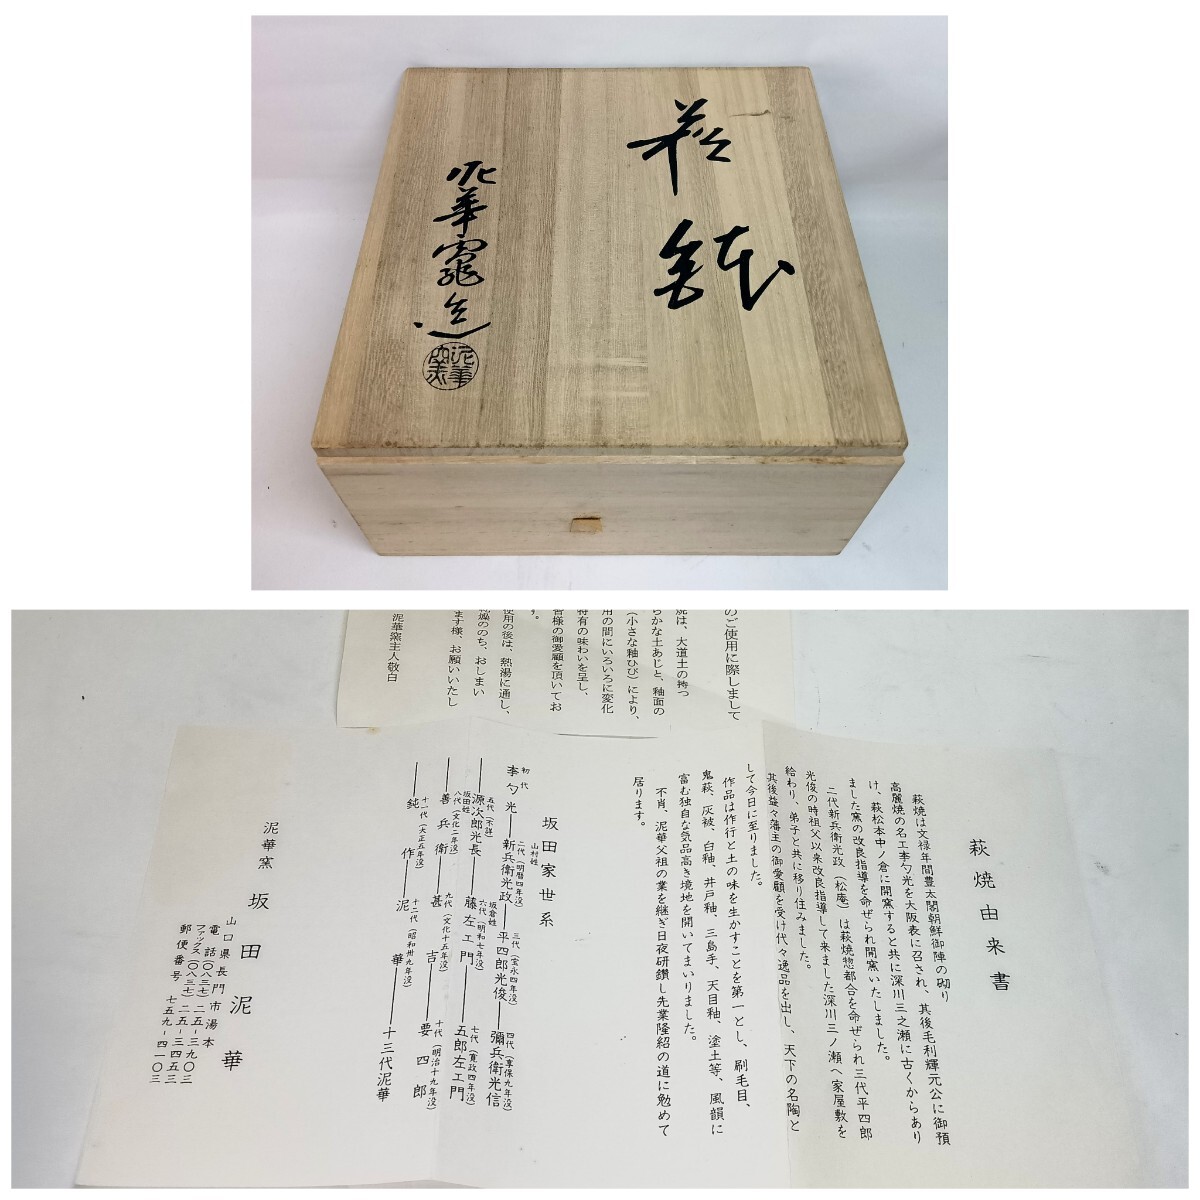 萩
鉢
泥華窯造
泥華
のご使用に際しまして
焼は、大道土の持つ
らかな土あじと、釉面の
(小さな釉ひび)により、
用の間にいろいろに変化
特有の味わいを呈し、
皆様の御愛顧を頂いてお
す。
使用の後は、熱湯に通し、
乾燥ののち、おしまい
ます様、お願いいたし
泥華窯主人敬白
萩焼由来書
萩焼は文禄年間豊太閤朝鮮御陣の砌り
高麗焼の名工李勺光を大阪表に召され、其後毛利輝元公に御預
け、萩松本中ノ倉に開窯すると共に深川三之瀬に古くからあり
ました窯の改良指導を命ぜられ開窯いたしました。
二代新兵衛光政(松庵)は萩焼惣都合を命ぜられ三代平四郎
光俊の時祖父以来改良指導して来ました深川三ノ瀬へ家屋敷を
給わり、弟子と共に移り住みました。
其後益々藩主の御愛顧を受け代々逸品を出し、天下の名陶と
して今日に至りました。
作品は作行と土の味を生かすことを第一とし、刷毛目、
鬼萩、灰被、白釉、井戸釉、三島手、天目釉、塗土等、風韻に
富む独自な気品高き境地を開いてまいりました。
不肖、泥華父祖の業を継ぎ日夜研鑽し先業隆紹の道に勉めて
居ります。
坂田家世系
初代 山村姓 二代(明暦四年没) 三代(宝永四年没) 四代(享保九年没)
李勺光―新兵衛光政―平四郎光俊―彌兵衛光信
五代(不詳) 坂倉姓 六代(明和七年没) 七代(寛政四年没)
―源次郎光長―藤左エ門―五郎左エ門
坂田姓 八代(文化二年没) 九代(文化十五年没) 十代(明治十九年没)
―善兵衛―甚吉―要四郎
十一代(大正五年没) 十二代(昭和卅九年没)
―鈍作―泥華―十三代泥華
泥華窯 坂田泥華
山口県長門市湯本
電話(〇八三七)二五―三九〇三
ファックス(〇八三七)二五―三四五三
郵便番号 七五九―四一〇三